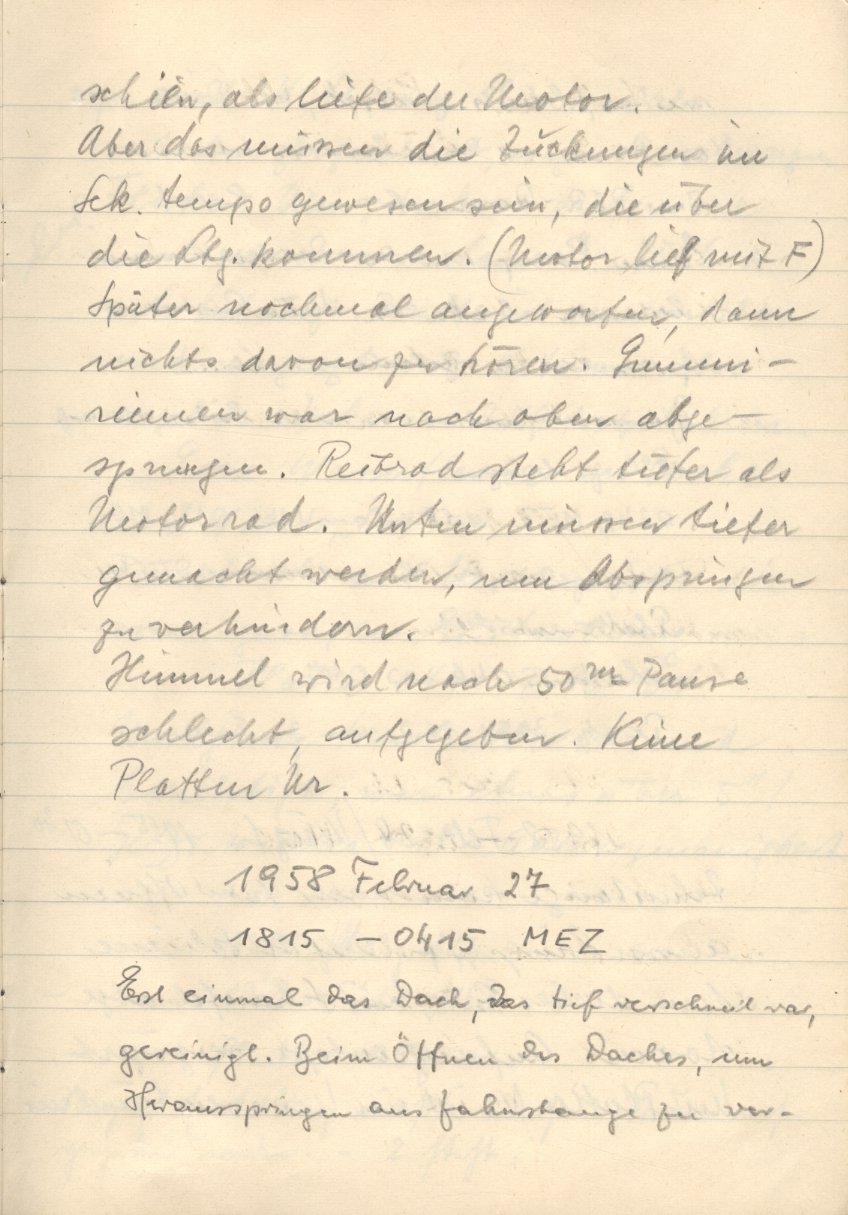 schien, als liefe der Motor.
Aber das müssen die Zuckungen im
Sek. tempo gewesen sein, die über
die Ltg. kommen. (Motor lief mit F)
Später nochmal angeworfen, dann
nichts davon zu hören. Gummi-
riemen war nach oben abge-
sprungen. Reibrad steht tiefer als
Motorrad. Unten müssen tiefer
gemacht werden, um Abspringen
zu verhindern.
Himmel wird nach 50 m Pause
schlecht, aufgegeben. Keine
Platten Nr.
1958 Februar 27
1815 – 0415 MEZ
Erst einmal das Dach, das tief verschneit war,
gereinigt. Beim Öffnen des Daches, um
Herausspringen aus Zahnstange zu ver-